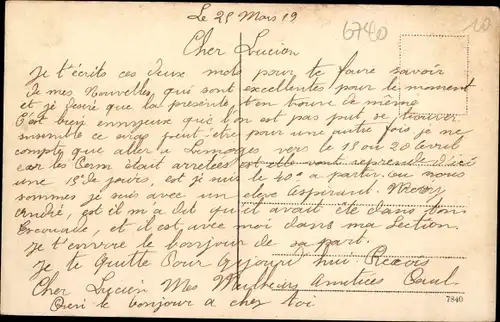 Le 25 Mars 19
6740
10
Cher Lucien
Je t'écrits ces deux mots pour te faire savoir
de mes Nouvelles, qui sont excellentes pour le moment
et je désire que la présente t'en boure de même
C'est bien ennuyeux que l'on est pas put, se trouver
ensemble ce sera peut-être pour une autre fois je ne
compte que aller a Limoges vers le 15 ou 20 Avril
car les Perm était arretées est elle vont reprendre d'ici
une 15e de jours, est je suis le 40e a partir. ou nous
sommes je suis avec un eleve Aspirant.
André, est il m'a dit qu'il avait été dans ton
Escouade, et il est, avec moi dans ma Section.
Je t'envoie le bonjour de sa part.
Je te Quitte Pour aujourd'hui. Reçois
Cher Lucien Mes Meilleurs Amitiées Paul
le bonjour a chez toi
7840